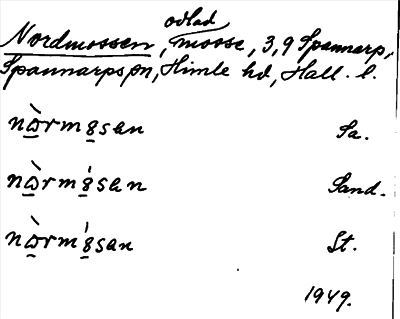 odlad
Nordmossen, mosse, 3,9 Spannarp,
Spannarps sn, Himle hd, Hall. l.
nɷ̀rmɞsan Sa.
nɷ̀rmɞ́san Sand.
nɷ̀rmɞ́san St.
1949.